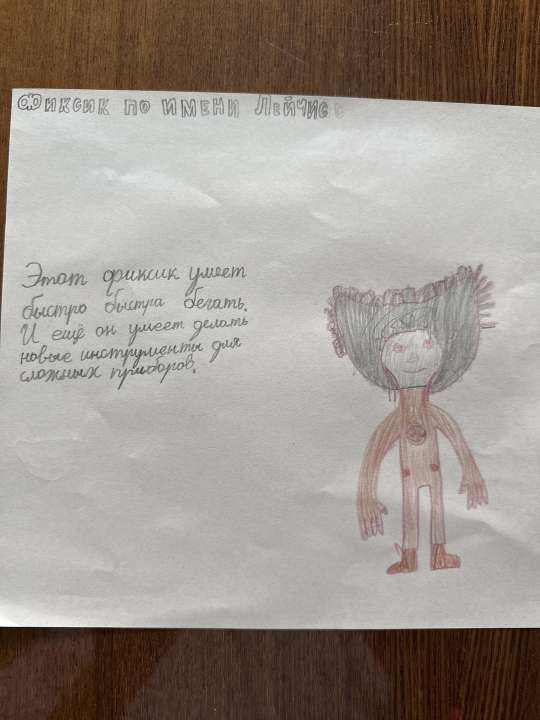 Фиксик по имени Лейчис
Этот фиксик умеет
быстро быстра бегать.
И ещё он умеет делать
новые инструменты для
сложных приборов.